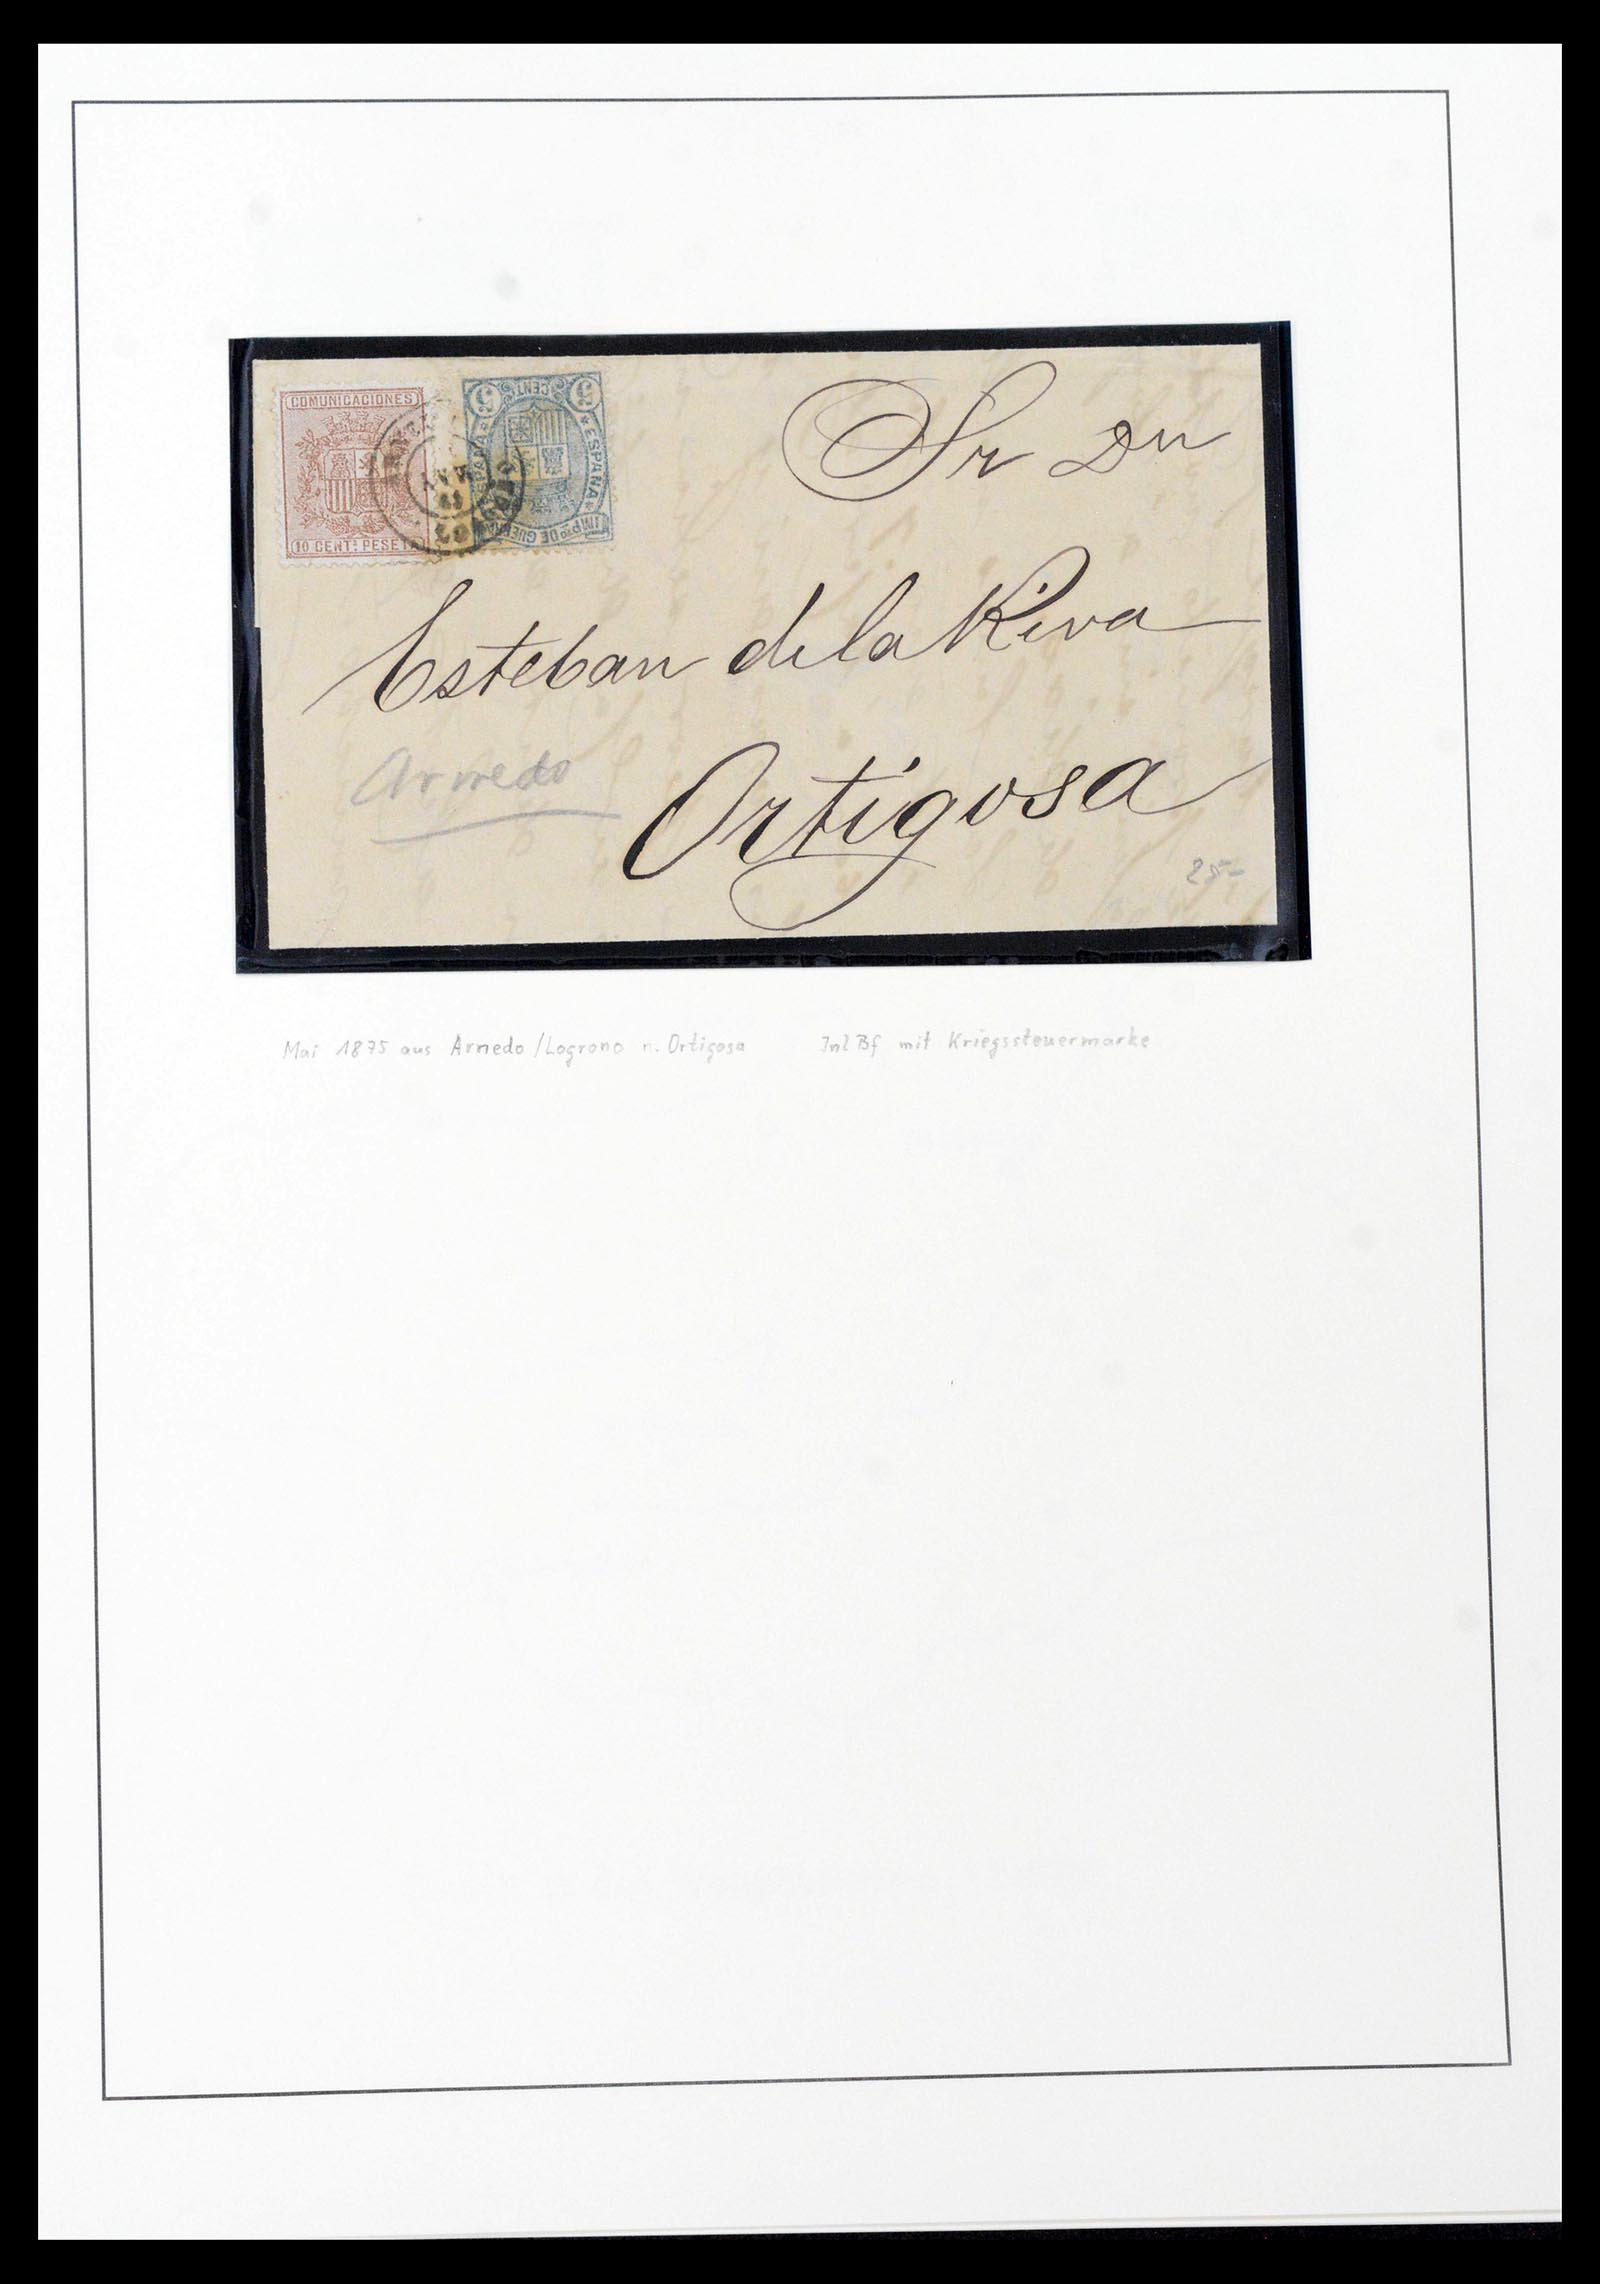 COMUNICACIONES
10 CENT: PESETA
5 CENT 5
ESPAÑA
ESPAÑA
IMPTO DE GUERRA
Sr Dn
Esteban de la Riva
Arnedo
Ortigosa
25-
Mai 1875 aus Arnedo/Logrono n. Ortigosa Inl Bf mit Kriegssteuermarke